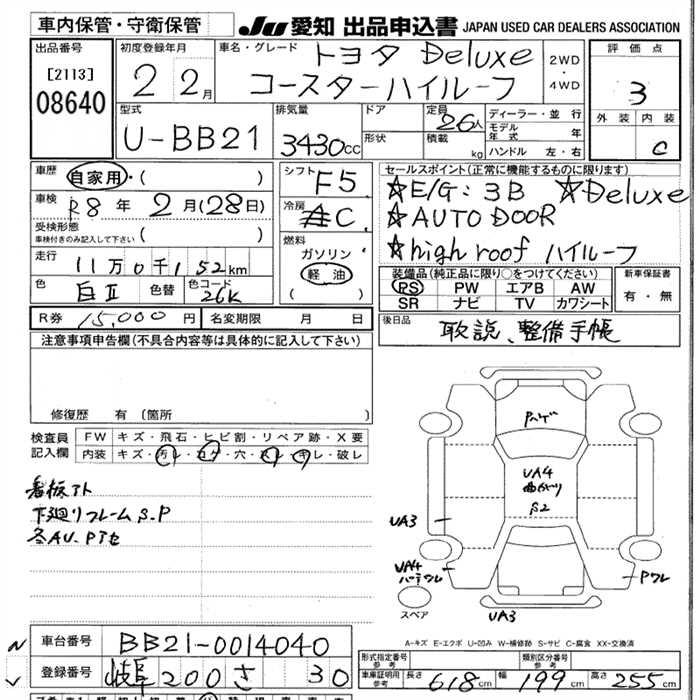 車内保管・守衛保管
JU 愛知 出品申込書 JAPAN USED CAR DEALERS ASSOCIATION
出品番号
[2113]
08640
初度登録年月
22年2月
車名・グレード
トヨタ Deluxe
コースターハイルーフ
2WD
・
4WD
評価点
3
外装 内装
C
型式
U-BB21
排気量
3430cc
ドア
形状
定員
26人
積載
kg
ディーラー・並行
モデル年式 年
ハンドル 左・右
車歴
自家用・( )
車検
R8年2月(28日)
受検形態
車検付きのみ記入して下さい ( )
走行
11万0千152km
色
白II
色替
カラーコード
26K
シフト
F5
冷房
AC
燃料
ガソリン
軽油
( )
セールスポイント(正常に機能するものに限ります)
☆E/G:3B ☆Deluxe
☆AUTO DOOR
☆high roof ハイルーフ
装備品(純正品に限り○をつけてください)
PS PW エアB AW
SR ナビ TV カワシート
新車保証書
有・無
R券 15,000円
名変期限 月 日
後日品
取説、整備手帳
注意事項申告欄(不具合内容等は具体的に記入して下さい)
修復歴 有(箇所
検査員
記入欄
FW キズ・飛石・ヒビ割・リペア跡・X要
内装 キズ・汚レ・コゲ・穴・スレ・キレ・破レ
看板アト
下廻りフレームS.P
Pハゲ
UA4
曲がり
S2
UA3
UA4
スペア
Pワレ
UA3
A-キズ E-エクボ U-凹み W-補修跡 S-サビ C-腐食 XX-交換済
車台番号
BB21-0014040
登録番号
岐阜200さ 30
形式指定番号
参考
類別区分番号
参考
車庫証明用
参考
長さ 618cm 幅 199cm 高さ 255cm